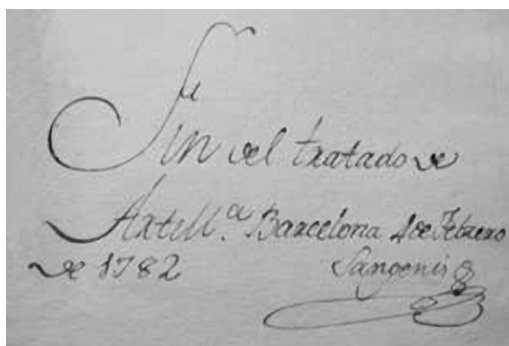 Fin del tratado de
Artill.ª Barcelona 1 de Febrero
de 1782 Sangenis